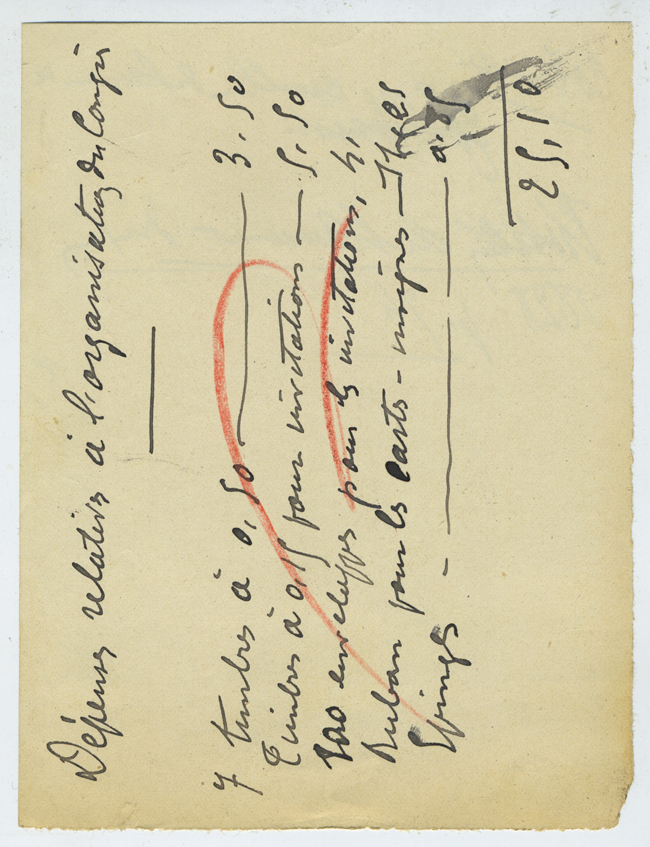 Dépenses relatives à l'organisation du Congrès
7 timbres à 0,50 — 3.50
Timbres à 0,15 pour invitations — 5,50
100 enveloppes pour les invitations, 4,
Ruban pour les cartes - insignes — 11,25
Epingles - — 0.85
25,10